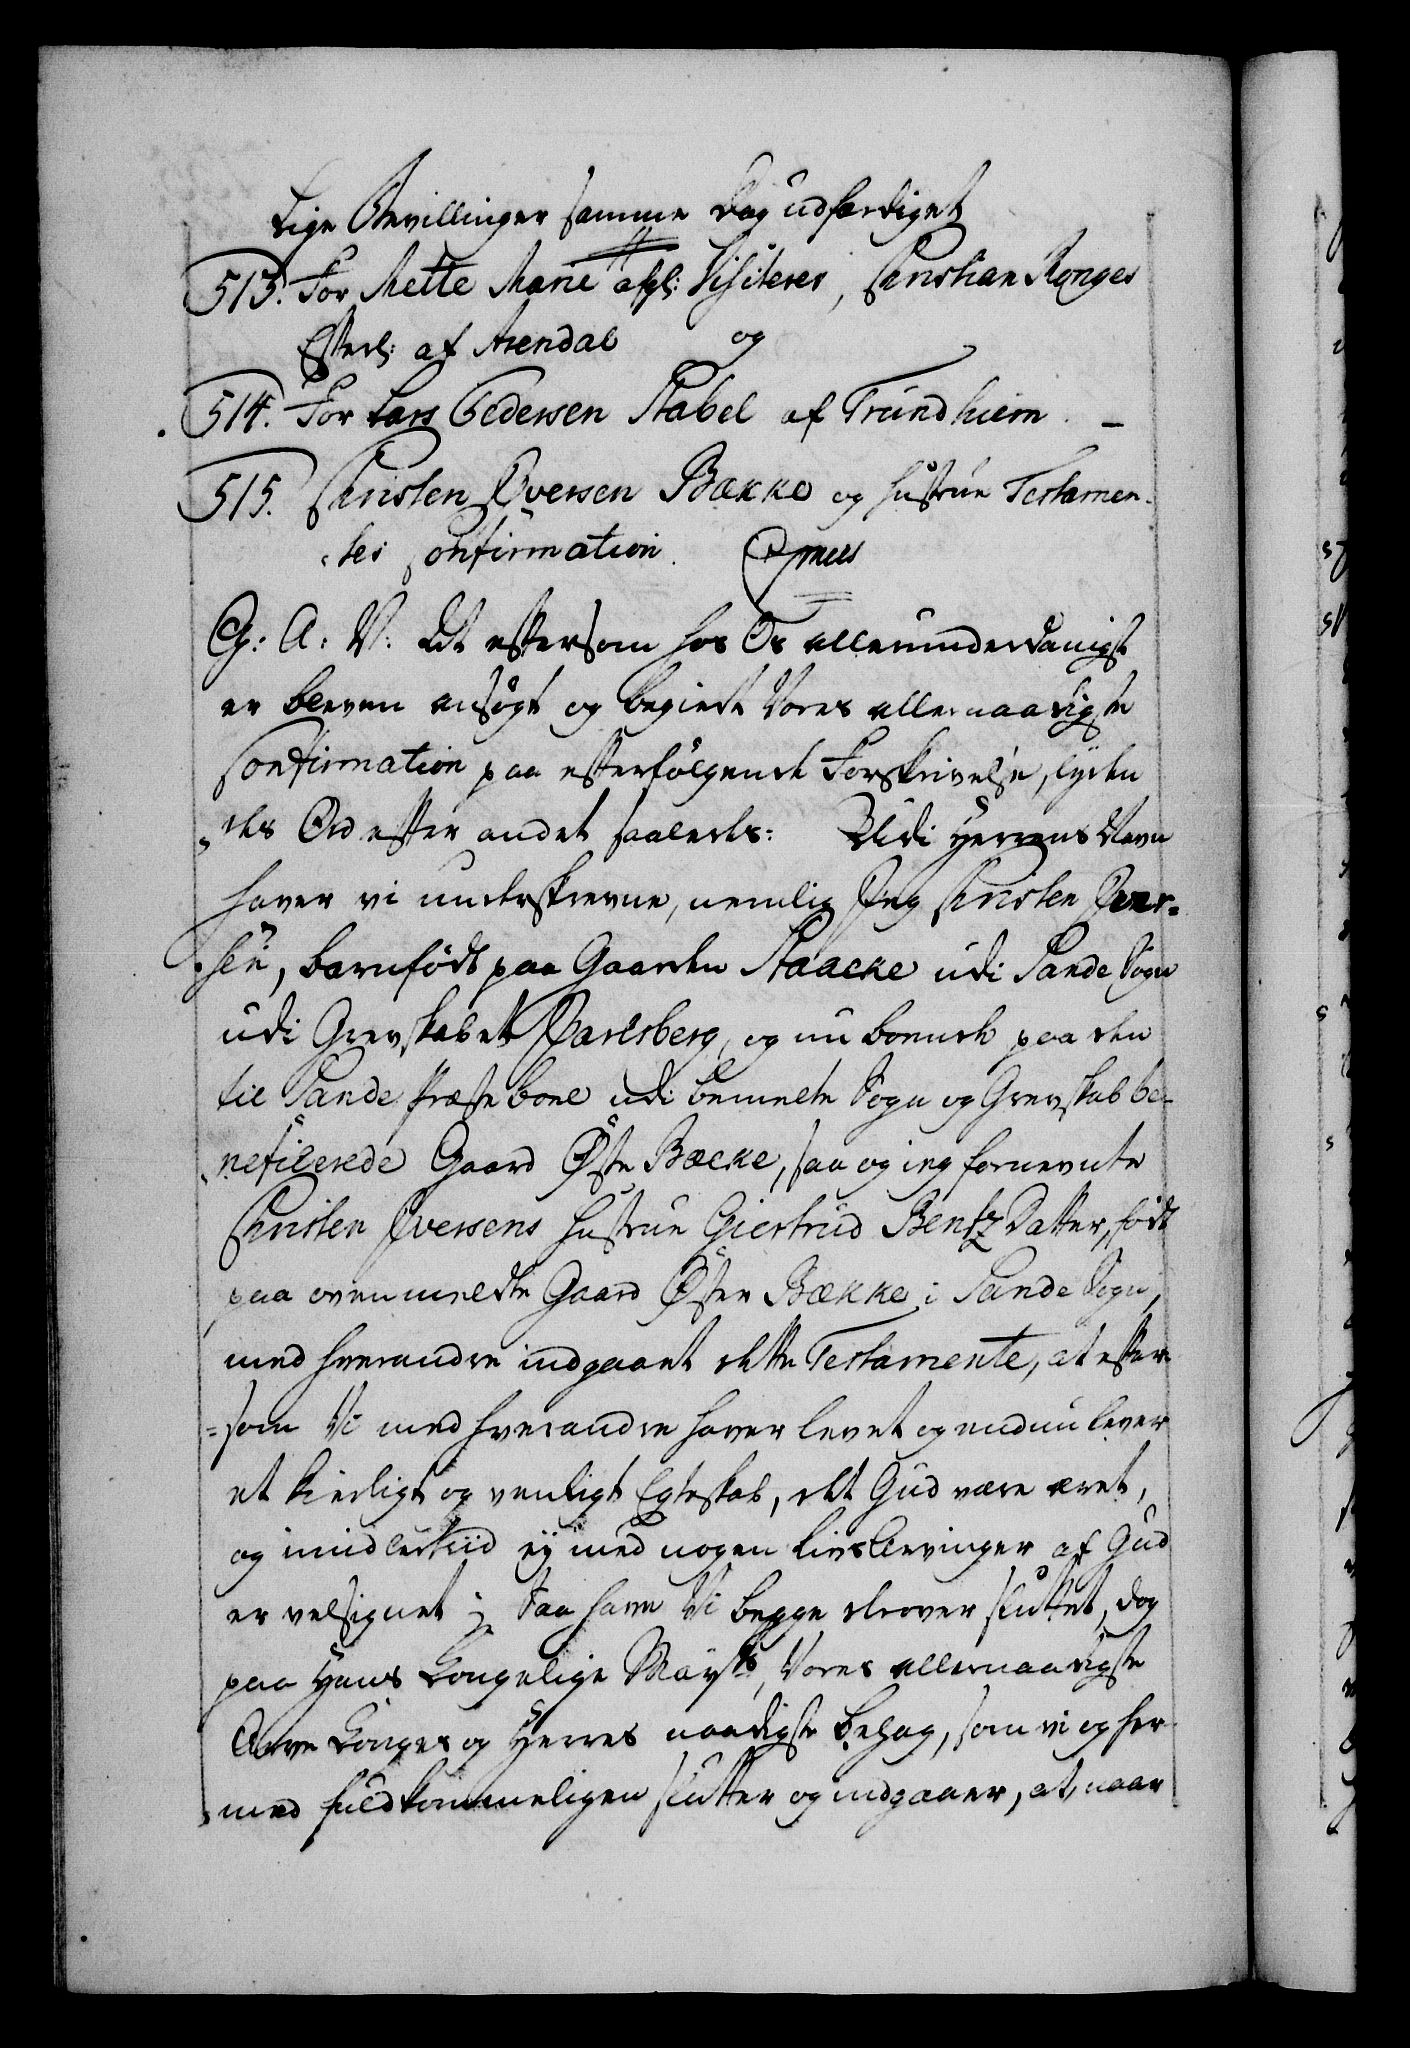 Lige Bevillinger samme Dag udfærdiget
513. For Mette Marie afgl: Visiteres, Christian Ronges
Efterl: af Arendal og
514. For Lars Pedersen Stabel af Trundhiem. –
515. Christen Iversen Bække og Hustrue Testamen-
-tes Confirmation.
G: A: V: at eftersom hos Os allerunderdanigst
er bleven ansøgt og begiert Vores allernaadigste
Confirmation paa efterfølgende Forskrivelse, lyden
-des Ord efter andet saaledes: Udi Herrens Navn
haver vi underskrevne, nemlig Jeg Christen Iver-
-sen, barnfødt paa Gaarden Staacke udi Sande Sogn
udi Grevskabet Jarlsberg, og nu boende paa den
til Sande Præstebool udi bemelte Sogn og Grevskab be-
-neficerede Gaard Østre Bæcke, saa og ieg fornevnte
Christen Iversens Hustrue Giertrud Bentz Datter, født
paa ovenmeldte Gaard Østre Bække i Sande Sogn,
med hverandre indgaaet dette Testamente, at efter-
-som Vi med hverandre haver levet og endnu lever
et kierligt og venligt Egteskab, det Gud være æret,
og imidlertiid ej med nogen Livs Arvinger af Gud
er velsignet; Saa have Vi begge derover sluttet, dog
paa Hans Kongelige Mayts, Vores allernaadigste
Arve Konges og Herres naadigste Behag, som vi og her-
-med fuldkommeligen slutter og indgaaer, at, naar